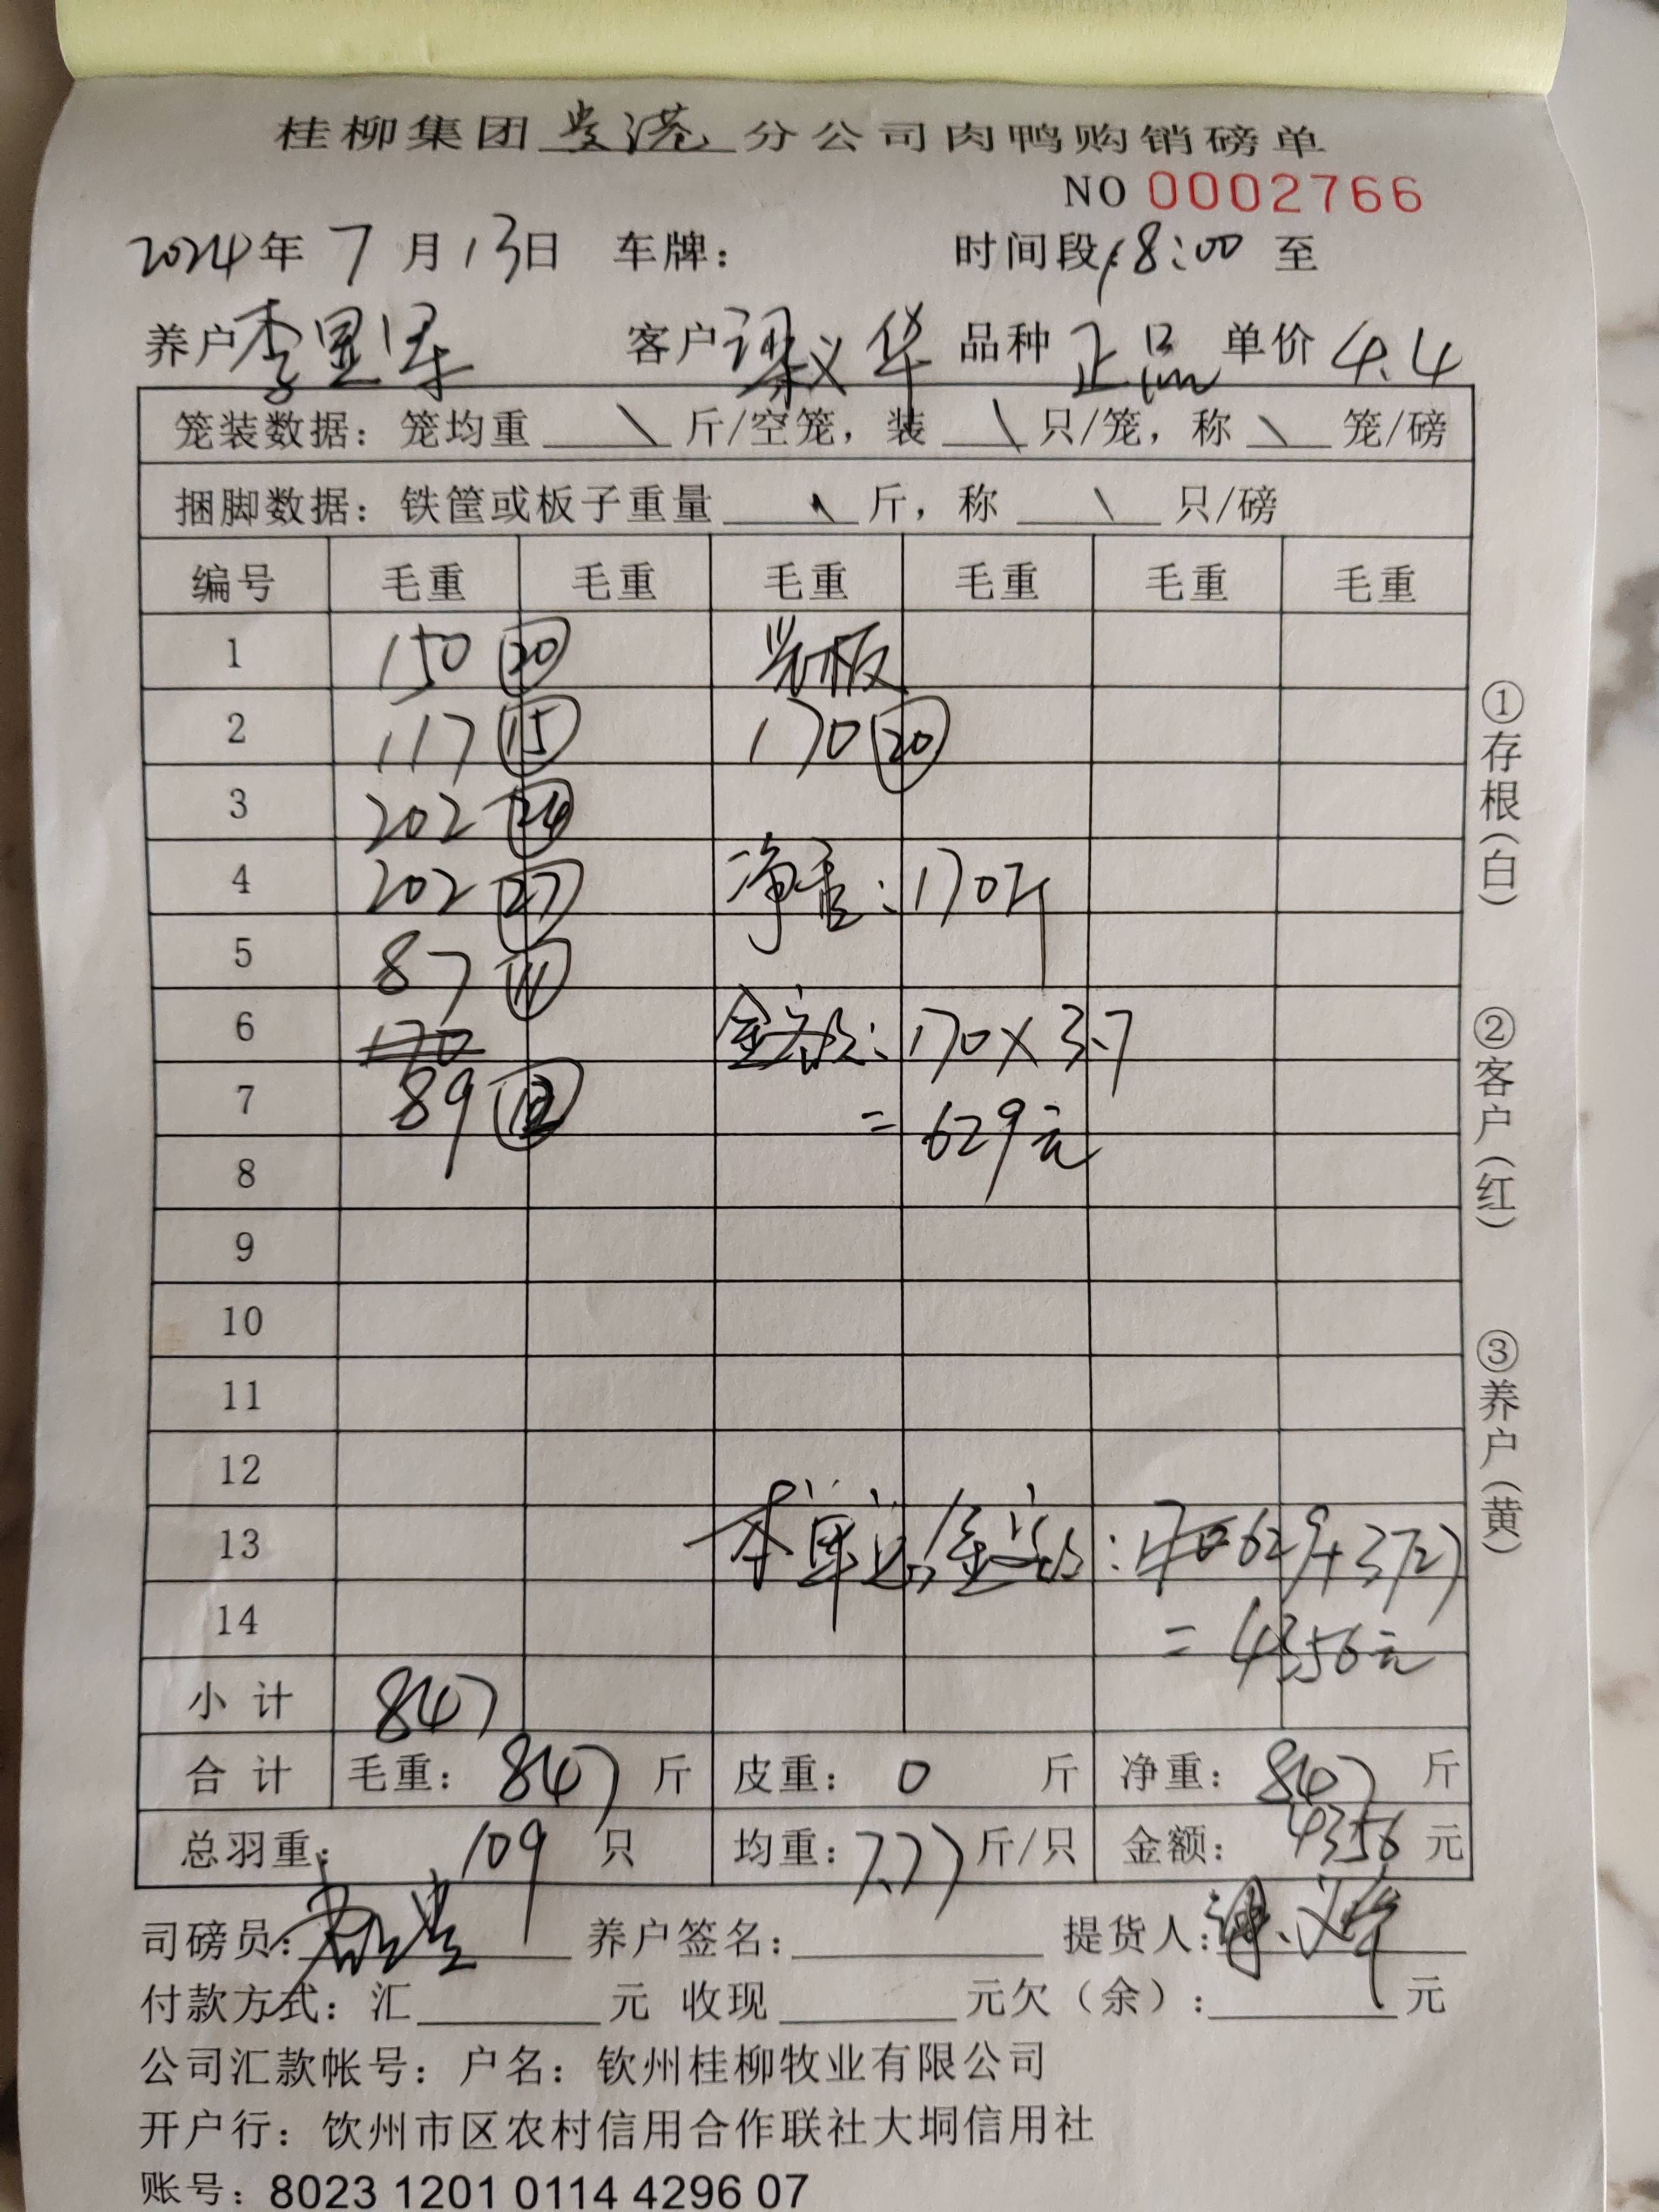 桂柳集团贵港分公司肉鸭购销磅单
NO 0002766
2024年 7月13日 车牌： 时间段：18:00 至
养户 李显 客户 梁义华 品种 正品 单价 4.4
笼装数据：笼均重 \ 斤/空笼，装 \ 只/笼，称 \ 笼/磅
捆脚数据：铁筐或板子重量 \ 斤，称 \ 只/磅
编号 毛重 毛重 毛重 毛重 毛重 毛重
1 150 ⑳ 光板
2 117 ⑮ 170 ⑳
3 202
4 202 ㉗ 净重：170斤
5 87 ⑪
6 170 金额：170×3.7
7 89 ⑫ =629元
8
9
10
11
12
13 本单总金额：629+3727
14 =4356元
小计 847
合计 毛重：847 斤 皮重：0 斤 净重：847 斤
总羽重：109 只 均重：7.77 斤/只 金额：4356 元
司磅员： 养户签名： 提货人：梁义华
付款方式：汇 元 收现 元欠（余）： 元
公司汇款帐号：户名：钦州桂柳牧业有限公司
开户行：饮州市区农村信用合作联社大垌信用社
账号：8023 1201 0114 4296 07
①存根（白）
②客户（红）
③养户（黄）